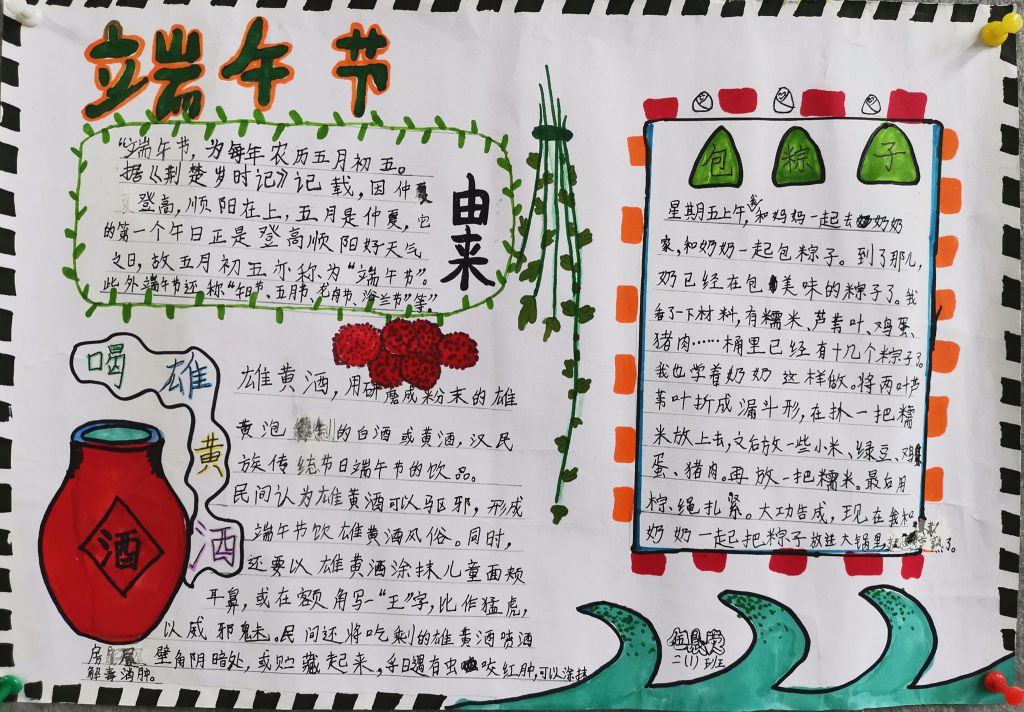 端午节
"端午节，为每年农历五月初五。
据《荆楚岁时记》记载，因仲夏
登高，顺阳在上，五月是仲夏，它
的第一个午日正是登高顺阳好天气
之日，故五月初五亦称为"端阳节"。
此外端午节还称"午日节、五月节、龙舟节、浴兰节"等"。
由来
喝雄黄酒
酒
雄黄酒，用研磨成粉末的雄
黄泡制的白酒或黄酒，汉民
族传统节日端午节的饮品。
民间认为雄黄酒可以驱邪，形成
端午节饮雄黄酒风俗。同时，
还要以雄黄酒涂抹儿童面颊
耳鼻，或在额角写一"王"字，比作猛虎，
以威邪魅。民间还将吃剩的雄黄酒喷洒
房屋壁角阴暗处，或贮藏起来，冬日遇有虫咬红肿，可以涂抹
解毒消肿。
包粽子
星期五上午，我和妈妈一起去奶奶
家，和奶奶一起包粽子。到了那儿，
奶已经在包美味的粽子了。我
看了一下材料，有糯米、芦苇叶、鸡蛋、
猪肉……桶里已经有十几个粽子了。
我也学着奶奶这样做。将两叶芦
苇叶折成漏斗形，在扒一把糯
米放上去，又后放一些小米、绿豆、鸡
蛋、猪肉。再放一把糯米。最后用
粽绳扎紧。大功告成，现在我和
奶奶一起把粽子放进大锅里熟了。
二(1)班